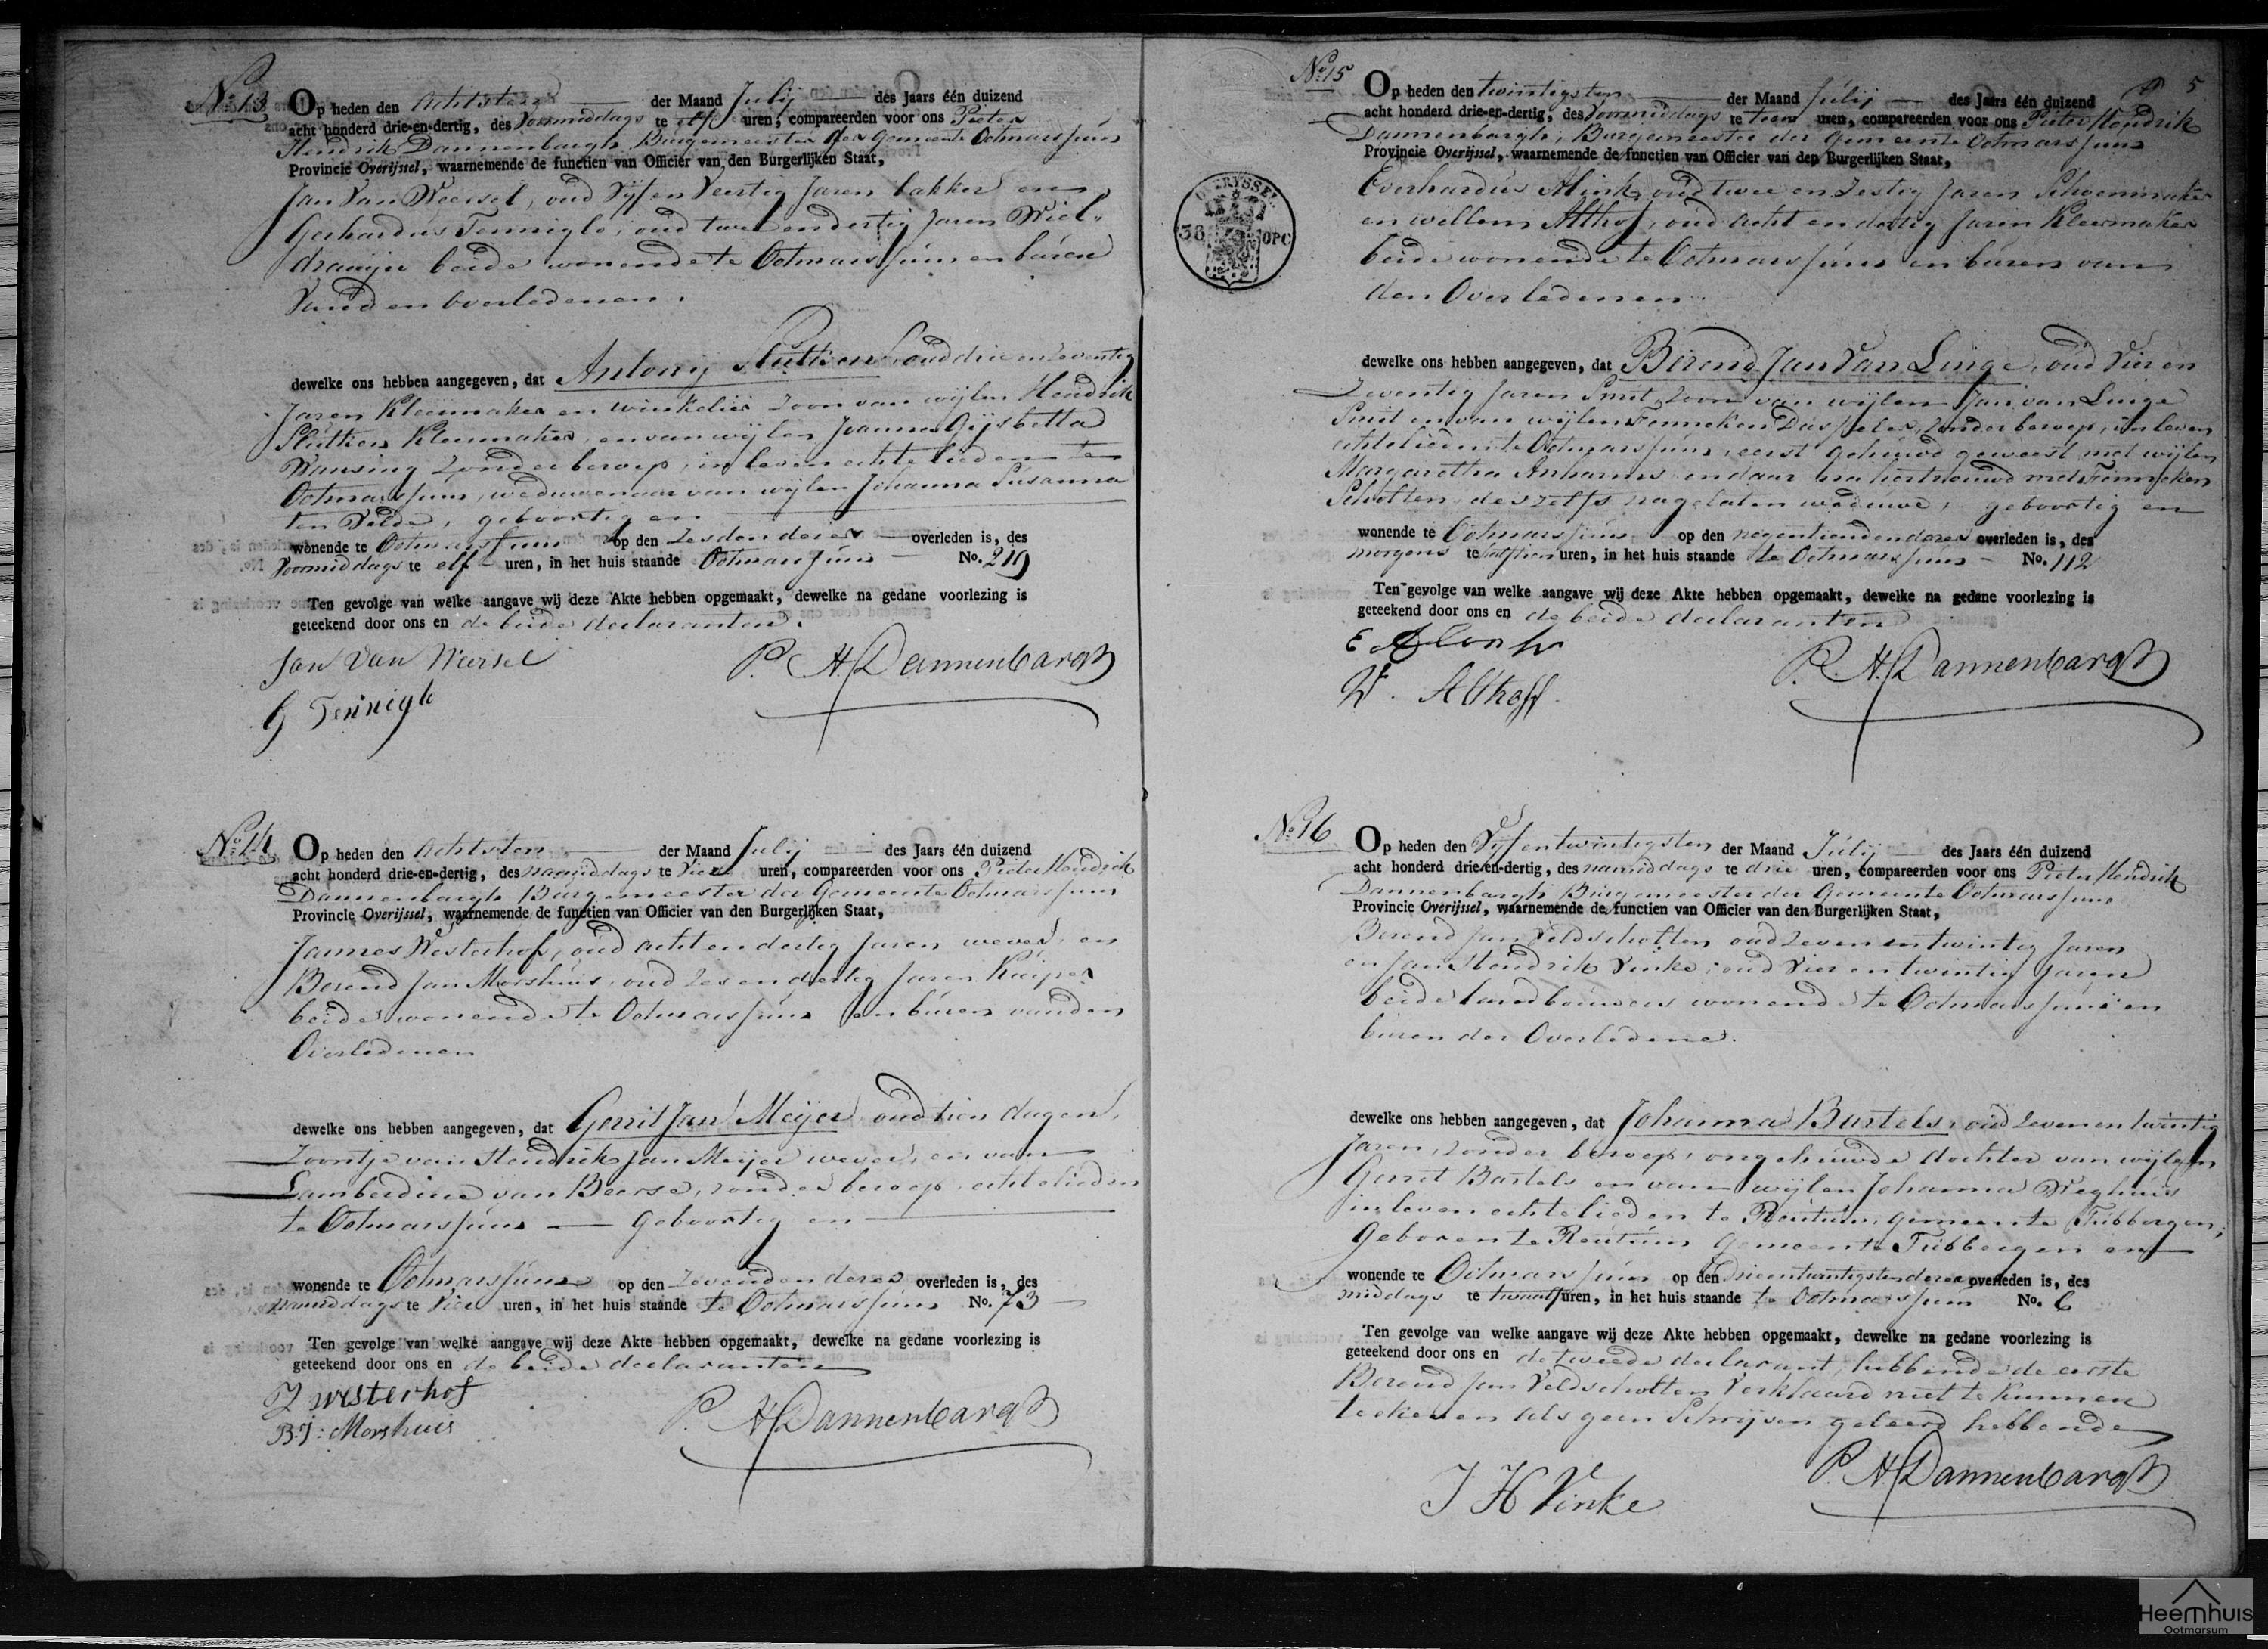 No 13
Op heden den Achtsten der Maand Julij des Jaars één duizend
acht honderd drie-en-dertig, des Voormiddags te elf uren, compareerden voor ons Pieter
Hendrik Dannenbargh, Burgemeester der Gemeente Ootmarssum
Provincie Overijssel, waarnemende de functien van Officier van den Burgerlijken Staat,
Jan Van Weersel, oud Vijf en Veertig Jaren bakker en
Gerhardus Tenniglo, oud twee en dertig Jaren Wiel-
draaijer beide wonende te Ootmarssum en buren
Van den overledenen.
dewelke ons hebben aangegeven, dat Antony Sluttien, oud drie en Zeventig
Jaren Kleermaker en winkelier Zoon van wijlen Hendrik
Sluttien Kleermaker, en van wijlen Joanna Gijsbetta
Wansing Zonder beroep, in leven echtelieden te
Ootmarssum, weduwenaar van wijlen Johanna Susanna
ten Velde, geboortig en
wonende te Ootmarssum op den Zesden dezer overleden is, des
Voormiddags te elf uren, in het huis staande Ootmarssum No. 219
Ten gevolge van welke aangave wij deze Akte hebben opgemaakt, dewelke na gedane voorlezing is
geteekend door ons en de beide declaranten.
Jan Van Weersel
P. H. Dannenbargh
G Tenniglo
No 14
Op heden den Achtsten der Maand Julij des Jaars één duizend
acht honderd drie-en-dertig, des namiddags te Vier uren, compareerden voor ons Pieter Hendrik
Dannenbargh Burgemeester der Gemeente Ootmarssum
Provincie Overijssel, waarnemende de functien van Officier van den Burgerlijken Staat,
Jannes Westerhof, oud acht en dertig Jaren wever, en
Berend Jan Morshuis, oud Zes en dertig Jaren Kuiper
beide wonende te Ootmarssum en buren van den
Overledenen
dewelke ons hebben aangegeven, dat Gerrit Jan Meijer oud tien dagen,
Zoontje van Hendrik Jan Meijer wever, en van
Lamberdina van Beerse, zonder beroep, echtelieden
te Ootmarssum Geboortig en
wonende te Ootmarssum op den Zevenden dezer overleden is, des
namiddags te Vier uren, in het huis staande te Ootmarssum No. 73
Ten gevolge van welke aangave wij deze Akte hebben opgemaakt, dewelke na gedane voorlezing is
geteekend door ons en de beide declaranten
J westerhof
P. H. Dannenbargh
B:J: Morshuis
5
No 15
Op heden den twintigsten der Maand Julij des Jaars één duizend
acht honderd drie-en-dertig, des Voormiddags te tien uren, compareerden voor ons Pieter Hendrik
Dannenbargh, Burgemeester der Gemeente Ootmarssum
Provincie Overijssel, waarnemende de functien van Officier van den Burgerlijken Staat,
Everhardus Alink, oud twee en Zestig Jaren Schoenmaker
en willem Althof, oud acht en dertig Jaren Kleermaker
beide wonende te Ootmarssum en buren van
den Overledenen.
OVERYSSEL
38 OPC
dewelke ons hebben aangegeven, dat Berend Jan Van Linge, oud Vier en
Zeventig Jaren Smit, Zoon van wijlen Jan van Linge
Smit en van wijlen Fenneken zonder beroep, in leven
echtelieden te Ootmarssum, eerst gehuwd geweest met wijlen
Margaretha en daar na hertrouwd met Fenneken
Scholten deszelfs nagelaten weduwe, geboortig en
wonende te Ootmarssum op den negentienden dezer overleden is, des
morgens te half tien uren, in het huis staande te Ootmarssum No. 112
Ten gevolge van welke aangave wij deze Akte hebben opgemaakt, dewelke na gedane voorlezing is
geteekend door ons en de beide declaranten
E
P. H. Dannenbargh
W. Althoff
No 16
Op heden den Vijf en twintigsten der Maand Julij des Jaars één duizend
acht honderd drie-en-dertig, des namiddags te drie uren, compareerden voor ons Pieter Hendrik
Dannenbargh Burgemeester der Gemeente Ootmarssum
Provincie Overijssel, waarnemende de functien van Officier van den Burgerlijken Staat,
Berend Jan Veldscholten oud Zeven en twintig Jaren
en Jan Hendrik Vinke, oud Vier en twintig Jaren
beide landbouwers wonende te Ootmarssum en
buren der Overledene.
dewelke ons hebben aangegeven, dat Johanna Bartels, oud Zeven en twintig
Jaren, zonder beroep, ongehuwde dochter van wijlen
Gerrit Bartels en van wijlen Johanna Weghuis
in leven echtelieden te Reutum, gemeente Tubbergen,
Geboren te Reutum Gemeente Tubbergen en
wonende te Ootmarssum op den drieentwintigsten dezer overleden is, des
middags te twaalf uren, in het huis staande te Ootmarssum No. 6
Ten gevolge van welke aangave wij deze Akte hebben opgemaakt, dewelke na gedane voorlezing is
geteekend door ons en de tweede declarant, hebbende de eerste
Berend Jan Veldscholten Verklaard niet te kunnen
teekenen als geen Schrijven geleerd hebbende
P. H. Dannenbargh
J H Vinke
Heemhuis
Ootmarsum